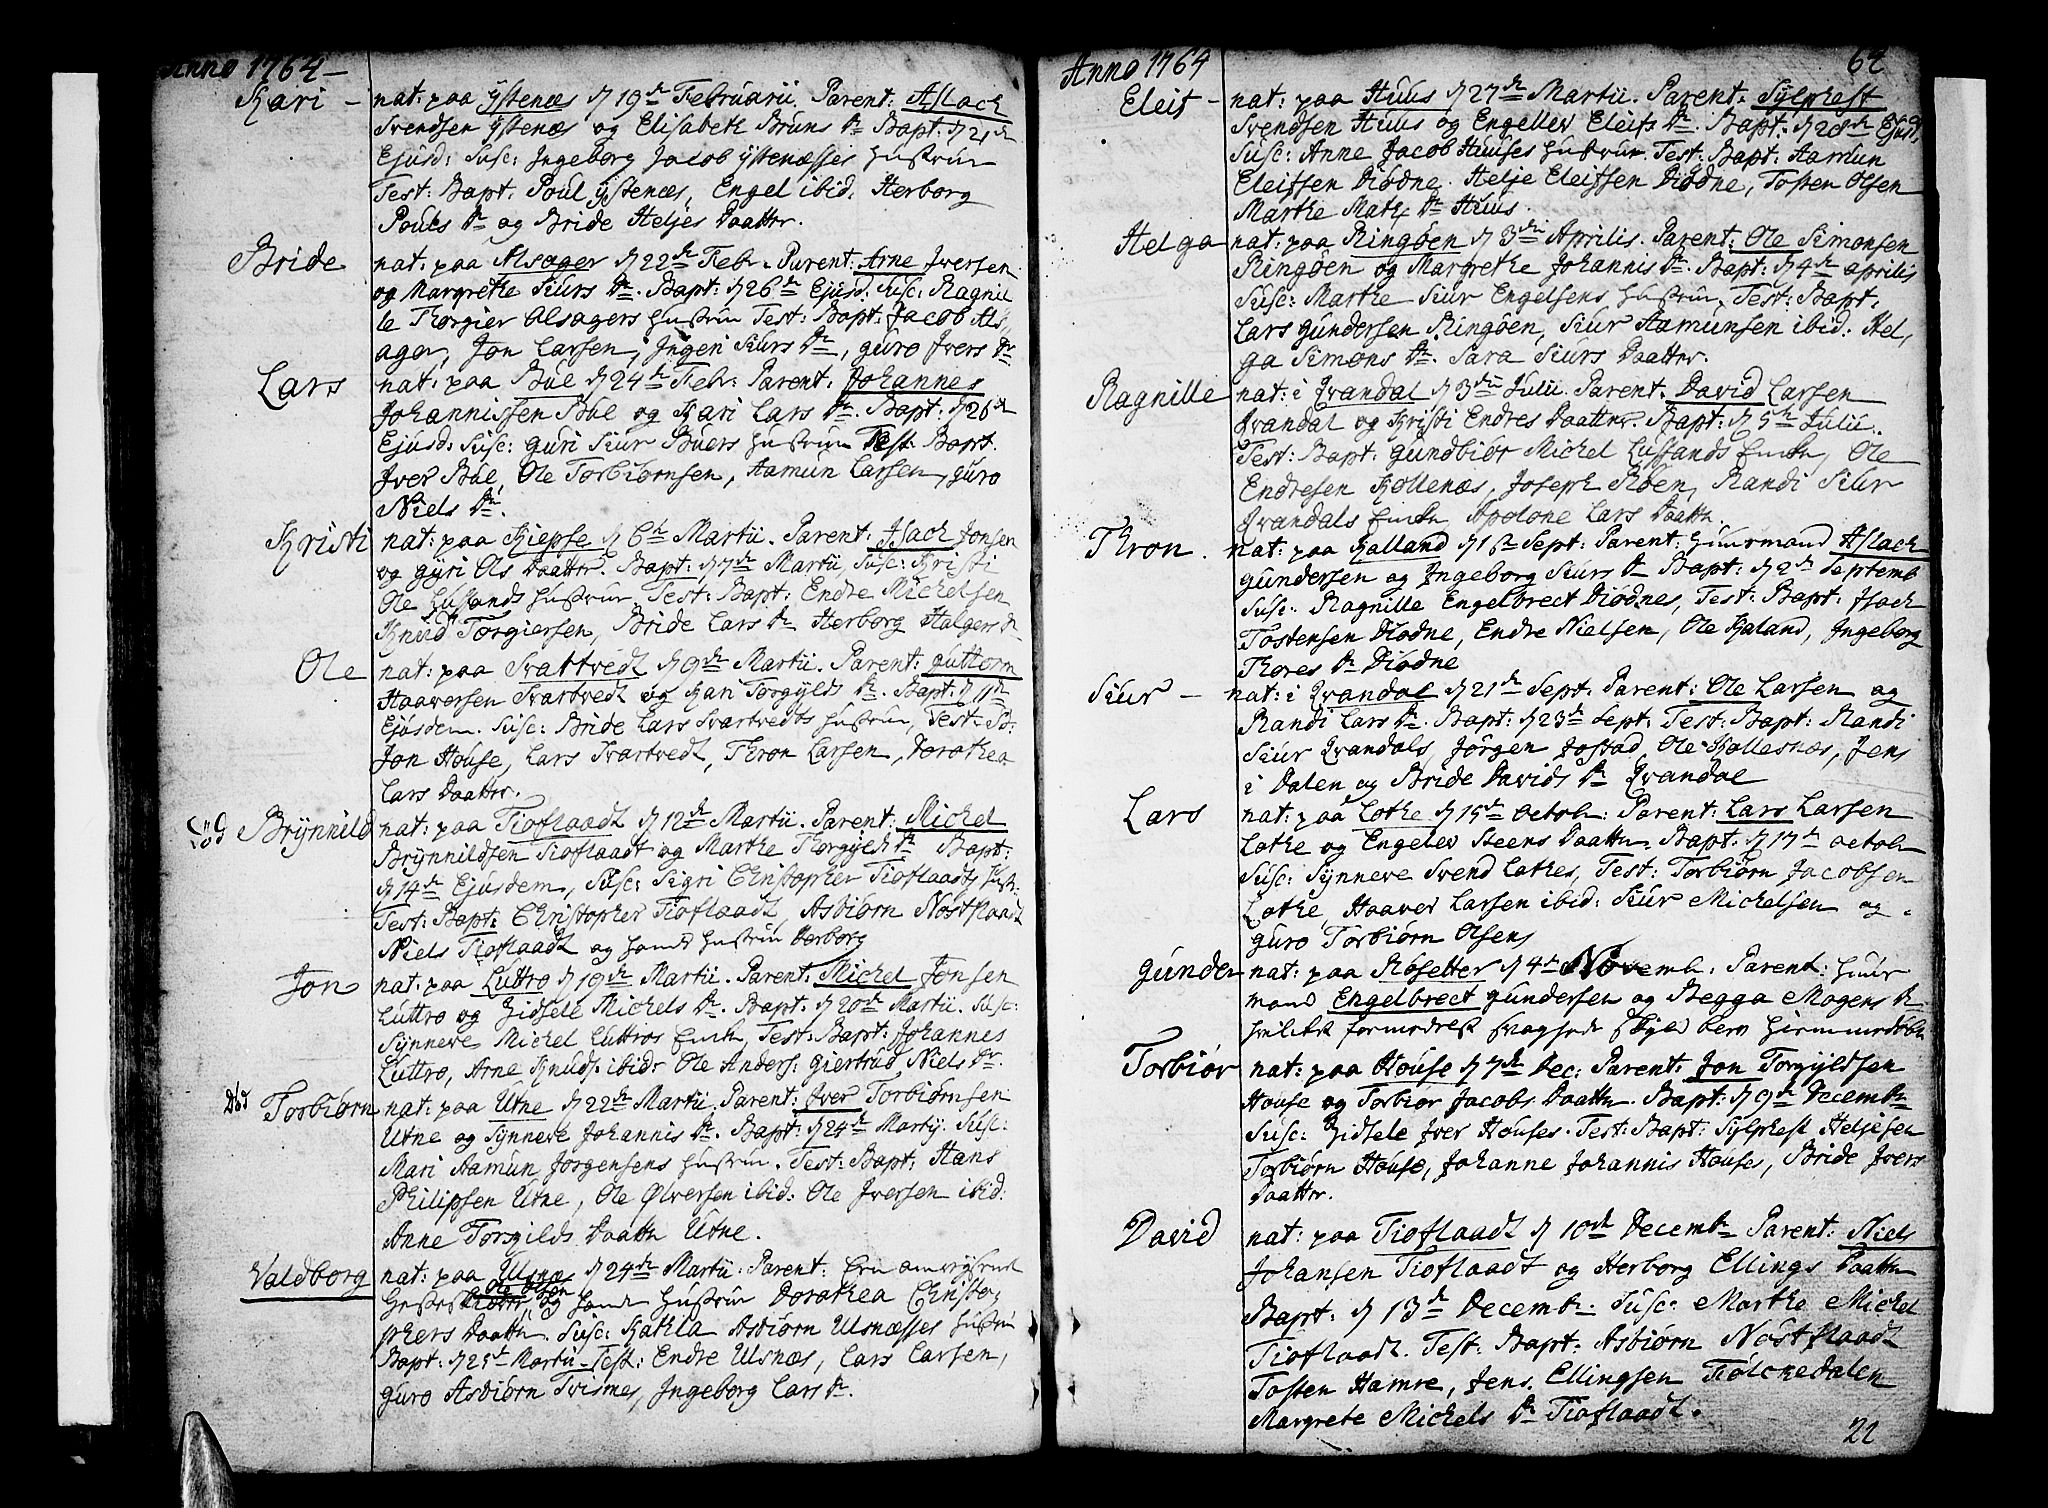 Anno 1764 –
Kari – nat: paa Ystenæs d 19de Februarii. Parent: Aslach
Svendsen Ystenæs og Elisabeth Bruns Dr. Bapt: d 21de
Ejusd: Susc: Ingeborg Jacob Ystenæsses Hustrue
Test: Bapt. Poul Ystenæs, Engel ibid. Herborg
Pouls Dr og Bride Heljes Daatter.
Bride nat: paa Alsager d 22de Febr. Parent: Arne Iversen
og Margrethe Siurs Dr. Bapt: d 26de Ejusd: Susc: Ragnil
le Thorgier Alsagers Hustrue Test: Bapt: Jacob Als,
ager, Jon Larsen, Ingeri Siurs Dr, Guro Ivers Dr
Lars nat: paa Büe d 24de Febr: Parent: Johannes
Johannissen Büe og Kari Lars Dr. Bapt: d 26de
Ejusd: Susc: Guri Siur Büers Hustrue Test: Bapt.
Iver Büe, Ole Torbiørnsen, Aamun Larsen, Guro
Niels Dr.
Kristi nat: paa Kiepse d 6th Martii. Parent: Isach Jonsen
og Gyri Ols Daatter. Bapt: d 7de Martii, Susc: Kristi
Ole Lussands Hustrue Test: Bapt: Endre Michelsen
Knud Torgiersen, Bride Lars Dr Herborg Halgers Dr
Ole nat: paa Svartvedt d 9de Martii. Parent: Guttorm
Haaversen Svartvedt og Kari Torgylds Dr. Bapt: d 11de
Ejusdem. Susc: Bride Lars Svartvedts Hustrue, Test: B:
Jon House, Lars Svartvedt, Thron Larsen, Dorothea
Lars Daatter.
Brynnild nat: paa Tioflaadt d 12de Martii. Parent: Michel
Brynnildsen Tioflaadt og Marthe Thorgyls Dr Bapt:
d 14de Ejusdem, Susc: Sigri Christopher Tioflaadts Hust:
Test: Bapt: Christopher Tioflaadt, Asbiørn Nøstflaadt
Niels Tioflaadt og hans Hustrue Herborg
Jon nat: paa Luttro d 19de Martii. Parent: Michel Jonsen
Luttro og Gidsele Michels Dr. Bapt: d 20de Martii. Susc:
Synneve Michel Luttros Enke, Test: Bapt: Johannes
Luttro, Arne Knuds: ibid: Ole Anders: Giertrud Niels Dr.
Død Torbiørn nat: paa Utne d 22de Martii. Parent: Iver Torbiørnsen
Utne og Synneve Johannis Dr. Bapt: d 24de Martij. Susc:
Mari Aamun Jørgensens Hustrue. Test: Bapt: Hans
Philipsen Utne, Ole Ølversen ibid: Ole Iversen ibid:
Anne Torsgilds Daatter Utne.
Valdborg nat: paa Ulsnæs d 24de Martii: Parent: En
Ole Olsen
og hans Hustrue Dorothea Christo,
phers Daatter. Susc: Kathla Asbiørn Ulsnæsses Hustrue
Bapt: d 25de Martii. Test: Endre Ulsnæs, Lars Larsen,
Guro Asbiørn Trismes, Ingeborg Lars Dr.
Anno 1764
64
Eleif – nat: paa Huus d 27de Martii. Parent: Sylphest
Svendsen Huus og Engeller Eleifs Dr. Bapt: d 28de Ejusd.
Susc: Anne Jacob Huuses Hustrue. Test: Bapt: Aamun
Eleifsen Diødne. Helje Eleifsen Diødne, Tosten Olsen
Marthe Math Dr Huus.
Helga nat: paa Ringøen d 3die Aprilis. Parent: Ole Simonsen
Ringøen og Margrethe Johannis Dr. Bapt: d 4de Aprilis
Susc: Marthe Siur Engelsens Hustrue. Test: Bapt:
Lars Gundersen Ringøen, Siur Aamunsen ibid: Hel,
ga Simons Dr. Sara Siurs Daatter.
Ragnille nat: i Qvandal d 3die Julii. Parent: David Larsen
Qvandal og Kristi Endres Daatter. Bapt: d 5th Julii.
Test: Bapt: Gundbiør Michel Lussands Enke, Ole
Endresen Kollenæs, Joseph Røen, Randi Siur
Qvandals Enke, Apolone Lars Daatter.
Thron. nat: paa Kalland d 1ste Sept: Parent: Huusmand Aslach
Gundersen og Ingeborg Siurs Dr Bapt: d 2de Septemb
Susc: Ragnille Engelbrect Diødnes, Test: Bapt: Isach
Tostensen Diødne, Endre Nielsen, Ole Kaland, Ingeborg
Thores Dr Diødne
Siur – nat: i Qvandal d 21de Sept: Parent: Ole Larsen og
Randi Lars Dr. Bapt: d 23de Sept: Test: Bapt: Randi
Siur Qvandals, Jørgen Jostad, Ole Kollesnæs, Jens
i Dalen og Bride Davids Dr Qvandal
Lars nat: paa Lothe d 15de Octob: Parent: Lars Larsen
Lothe og Engelev Steens Daatter. Bapt: d 17de Octob
Susc: Synneve Svend Lothes, Test: Torbiørn Jacobsen
Lothe, Haaver Larsen ibid: Siur Michelsen og
Guro Torbiørn Olsens
Gunder nat: paa Røsetter d 4de Novemb: Parent: Huus
mand Engelbrect Gundersen og Begga Mogens Dr
hvilket formedelst svaghed skyld blev hiemmedøbt
Torbiør nat: paa House d 7de Dec: Parent: Jon Torgyldsen
House og Torbiør Jacobs Daatter. Bapt: d 9de Decembr
Susc: Gidsele Iver Houses. Test: Bapt: Sylphest Heljesen
Torbiørn House, Johanne Johannis Houses, Bride Ivers
Daatter.
David nat: paa Tioflaadt d 10de Decembr Parent: Niels
Johansen Tioflaadt og Herborg Ellings Daatter
Bapt: d 13de Decembr. Susc: Marthe Michel
Tioflaadt. Test: Bapt: Asbiørn Nøstflaadt
Tosten Hamre, Jens. Ellingsen Tiolckedalen
Margrete Michels Dr Tioflaadt.
22